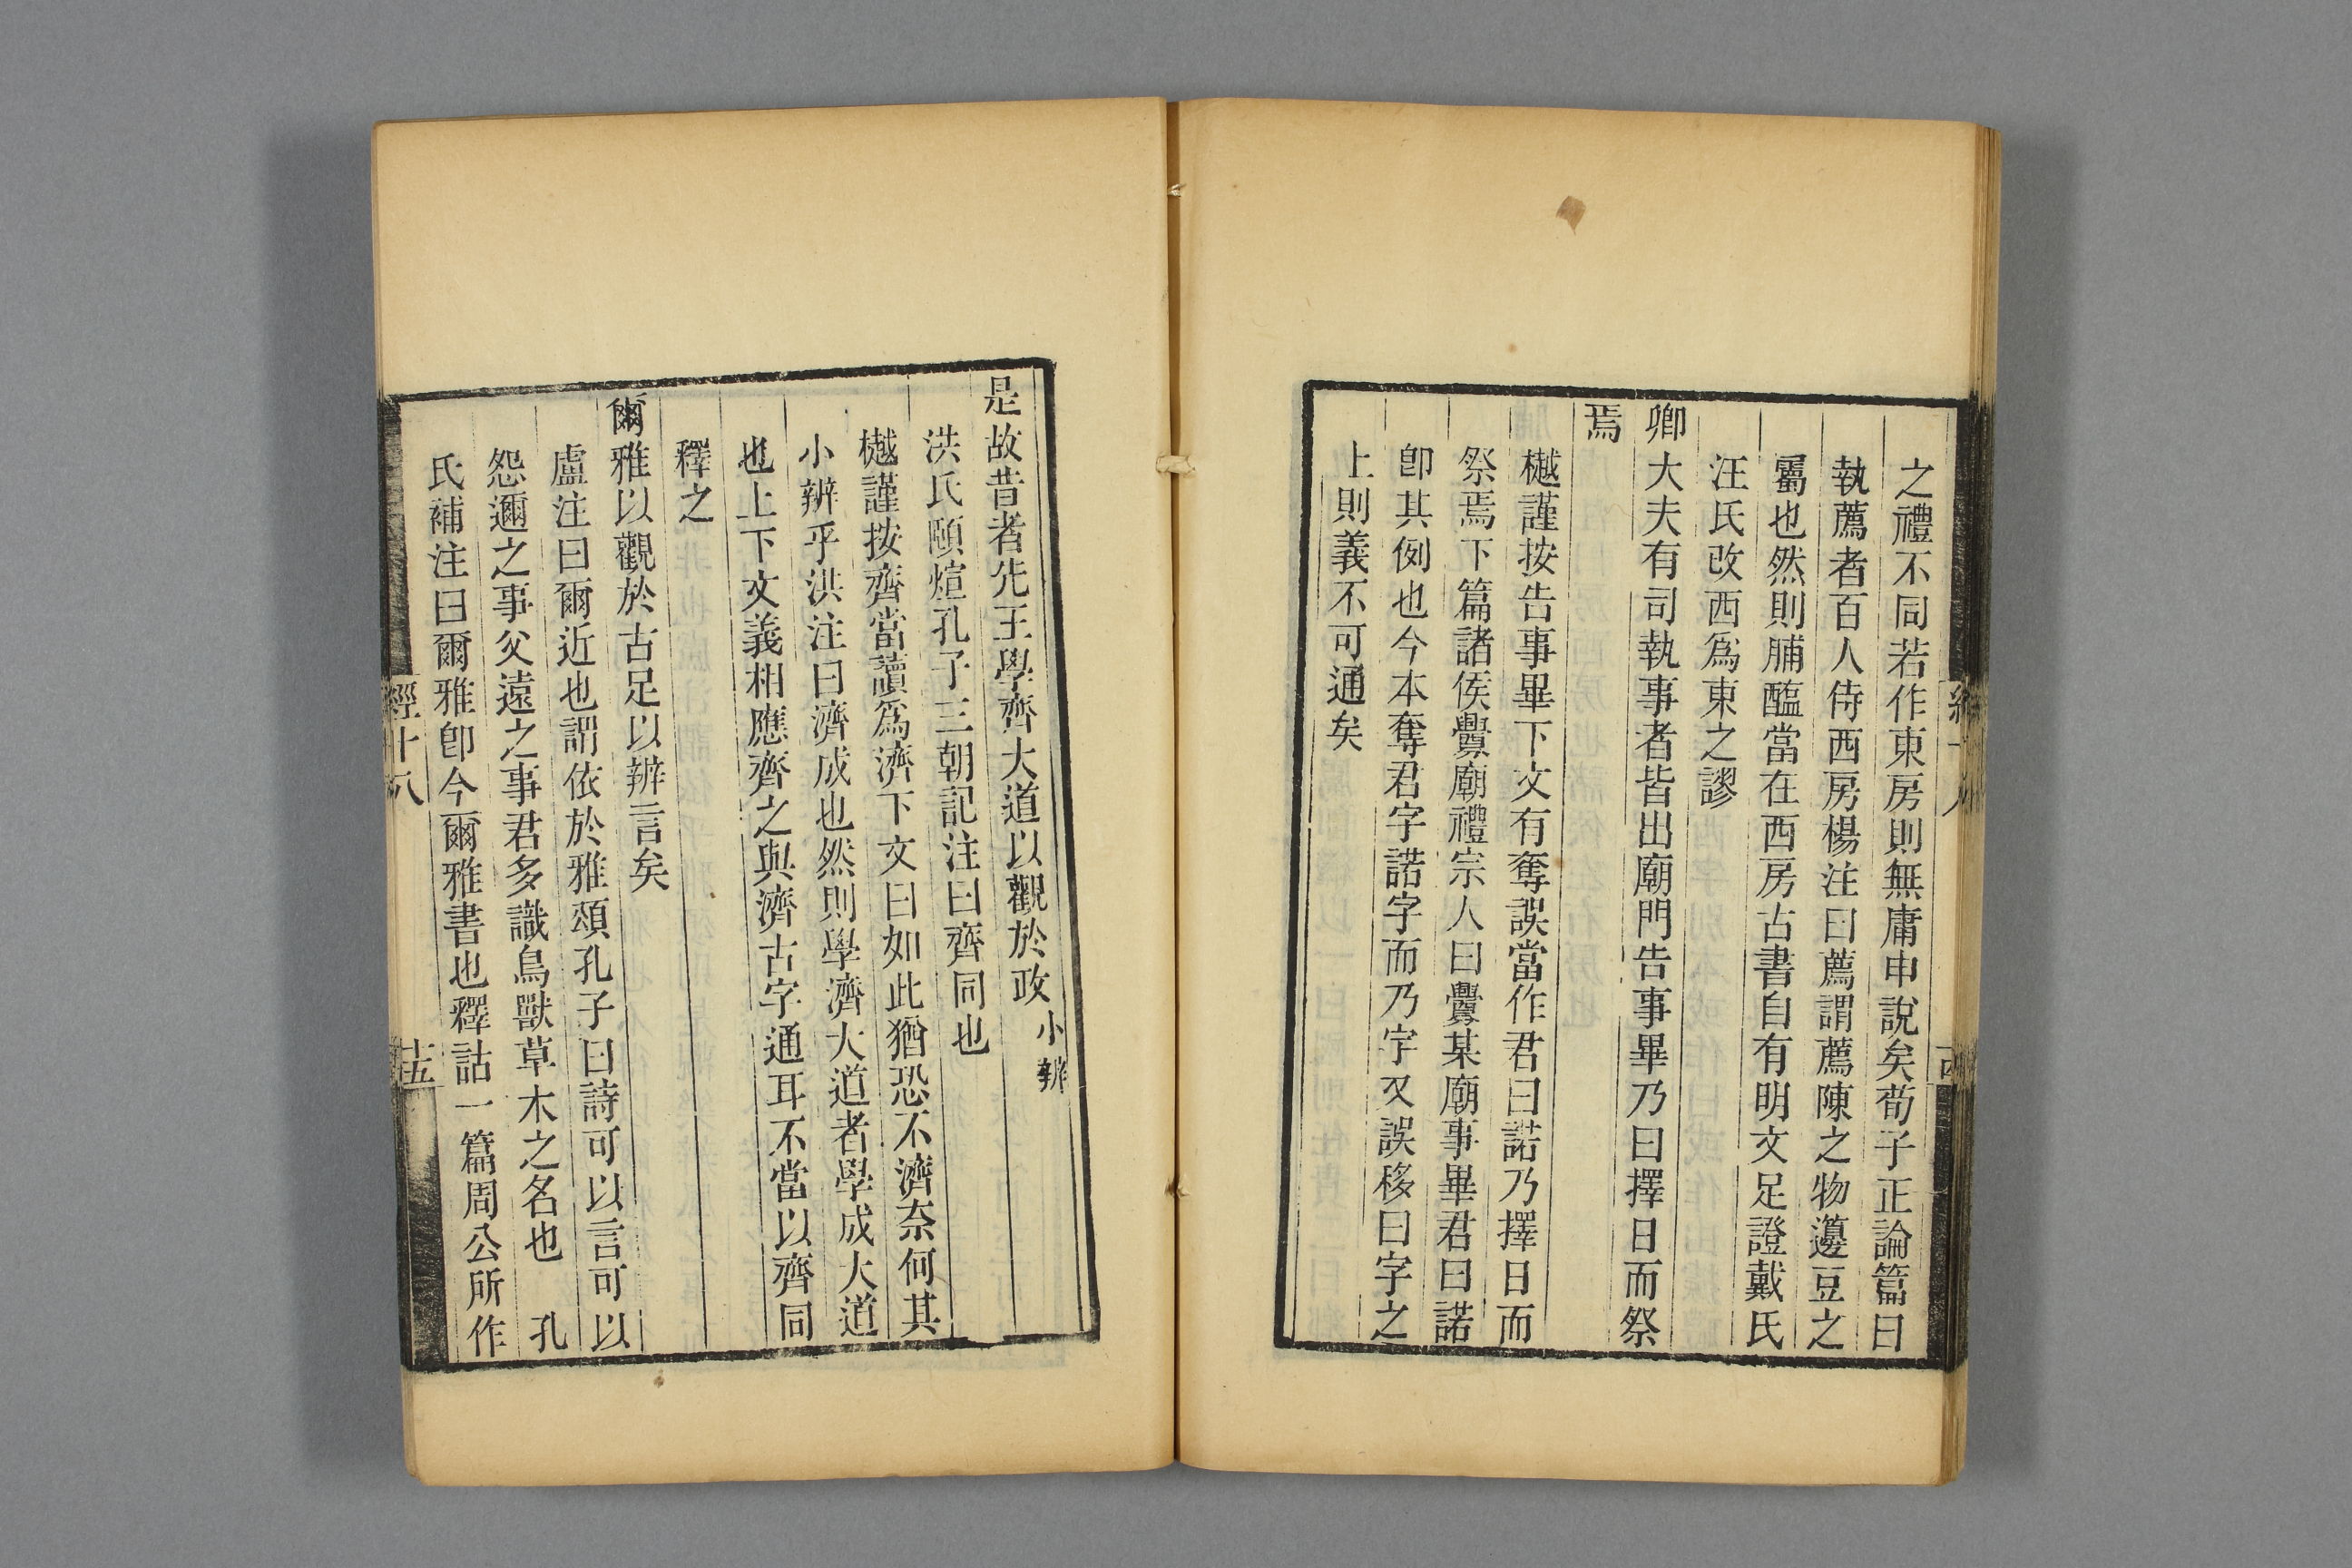 之禮不同若作東房則無庸申說矣荀子正論篇曰
執薦者百人侍西房楊注曰薦謂薦陳之物籩豆之
屬也然則脯醢當在西房古書自有明文足證戴氏
汪氏改西爲東之謬
卿大夫有司執事者皆出廟門告事畢乃曰擇日而祭
焉
樾謹按告事畢下文有奪誤當作君曰諾乃擇日而
祭焉下篇諸侯釁廟禮宗人曰釁某廟事畢君曰諾
卽其例也今本奪君字諾字而乃字又誤移曰字之
上則義不可通矣
是故昔者先王學齊大道以觀於政小辨
洪氏頤煊孔子三朝記注曰齊同也
樾謹按齊當讀爲濟下文曰如此猶恐不濟奈何其
小辨乎洪注曰濟成也然則學濟大道者學成大道
也上下文義相應齊之與濟古字通耳不當以齊同
釋之
爾雅以觀於古足以辨言矣
盧注曰爾近也謂依於雅頌孔子曰詩可以言可以
怨邇之事父遠之事君多識鳥獸草木之名也　孔
氏補注曰爾雅卽今爾雅書也釋詁一篇周公所作
經十八
十五